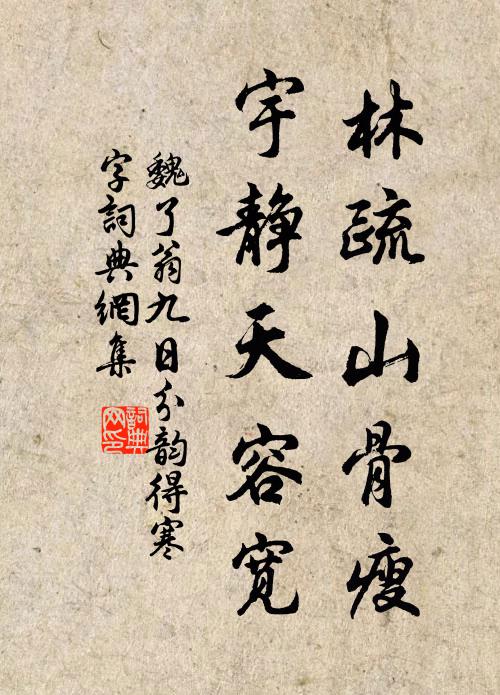 林疏山骨瘦
宇静天容寬
魏了翁九日分韵得寒
字詞典網集
詞典网印